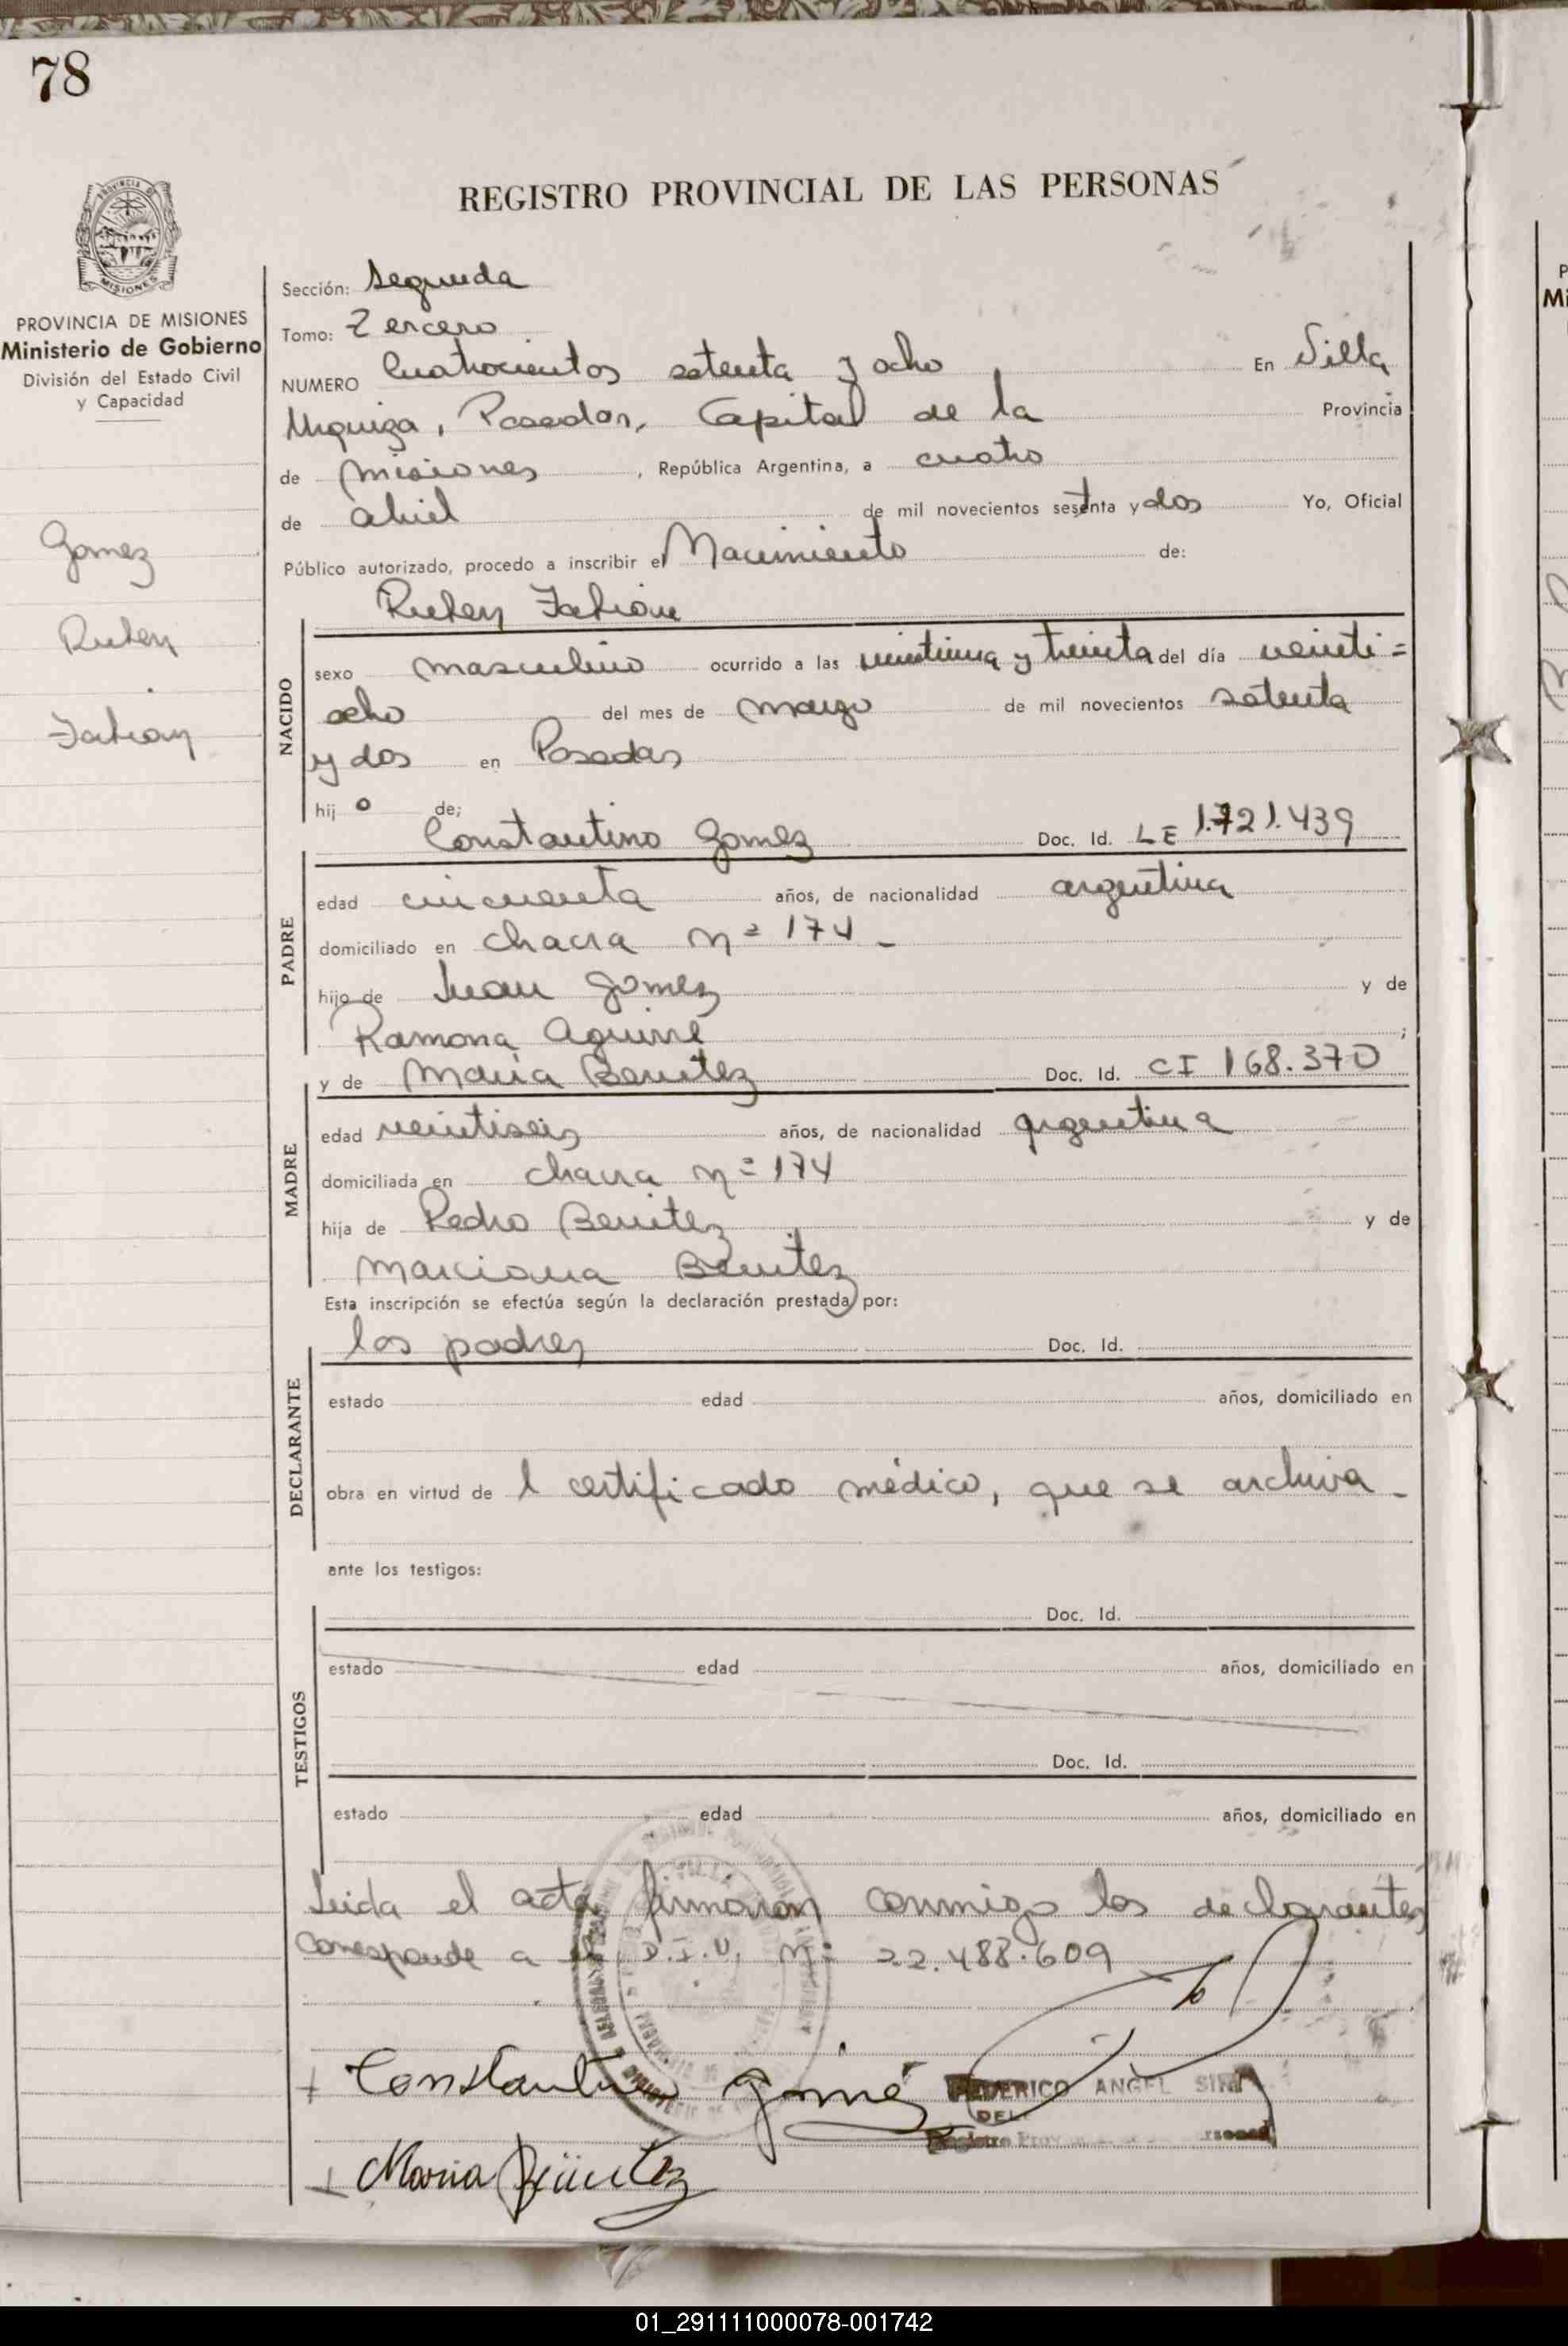 78
REGISTRO PROVINCIAL DE LAS PERSONAS
MISIONES
PROVINCIA DE MISIONES
Ministerio de Gobierno
División del Estado Civil
y Capacidad
Gomez
Ruben
Fabian
Sección: Segunda
Tomo: Tercero
NUMERO Cuatrocientos setenta y ocho En Villa
Urquiza, Posadas, Capital de la Provincia
de misiones, República Argentina, a cuatro
de abril de mil novecientos setenta y dos Yo, Oficial
Público autorizado, procedo a inscribir el Nacimiento de:
Ruben Fabian
NACIDO
sexo masculino ocurrido a las veintiuna y treinta del día veinti=
ocho del mes de marzo de mil novecientos setenta
y dos en Posadas
hijo de;
Constantino Gomez Doc. Id. LE 1.721.439
PADRE
edad cincuenta años, de nacionalidad argentina
domiciliado en chacra nº 174 -
hijo de Juan Gomez y de
Ramona Aguirre ;
y de Maria Benitez Doc. Id. CI 168.370
MADRE
edad veintiseis años, de nacionalidad argentina
domiciliada en chacra nº 174
hija de Pedro Benitez y de
Marciana Benitez
Esta inscripción se efectúa según la declaración prestada por:
los padres Doc. Id.
DECLARANTE
estado edad años, domiciliado en
obra en virtud de l certificado médico, que se archiva -
ante los testigos:
Doc. Id.
TESTIGOS
estado edad años, domiciliado en
Doc. Id.
estado edad años, domiciliado en
Leida el acta firmaron conmigo los declarantes
corresponde a el D.I.U. nº 22.488.609
Constantino Gomez
FEDERICO ANGEL
DEL
Registro
Maria Benitez
01_291111000078-001742